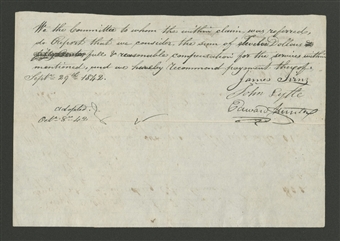 We the Committee to whom the within claim was referred,
do Report that we consider the sum of twelve Dollars &
full & reasonable compensation for the services within
mentioned, and we hereby recommend payment thereof.
Sept. 29th 1842.
James
John
Edward
adopted
Oct. 3d 42